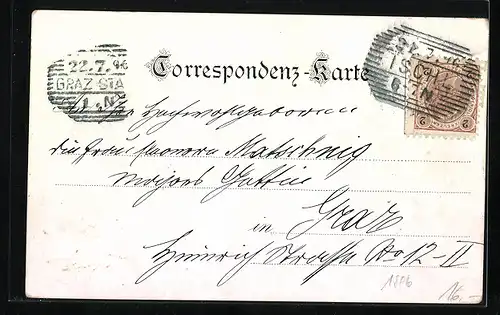 22.7.96
GRAZ STA
1.N
Correspondenz-Karte
6-7N
2 2
Ihrer Hochwohlgeboren
die Frau Eleonora Matschnig
Majors Gattin
in Graz
Heinrich Strasse No 12-II
1896
16,-